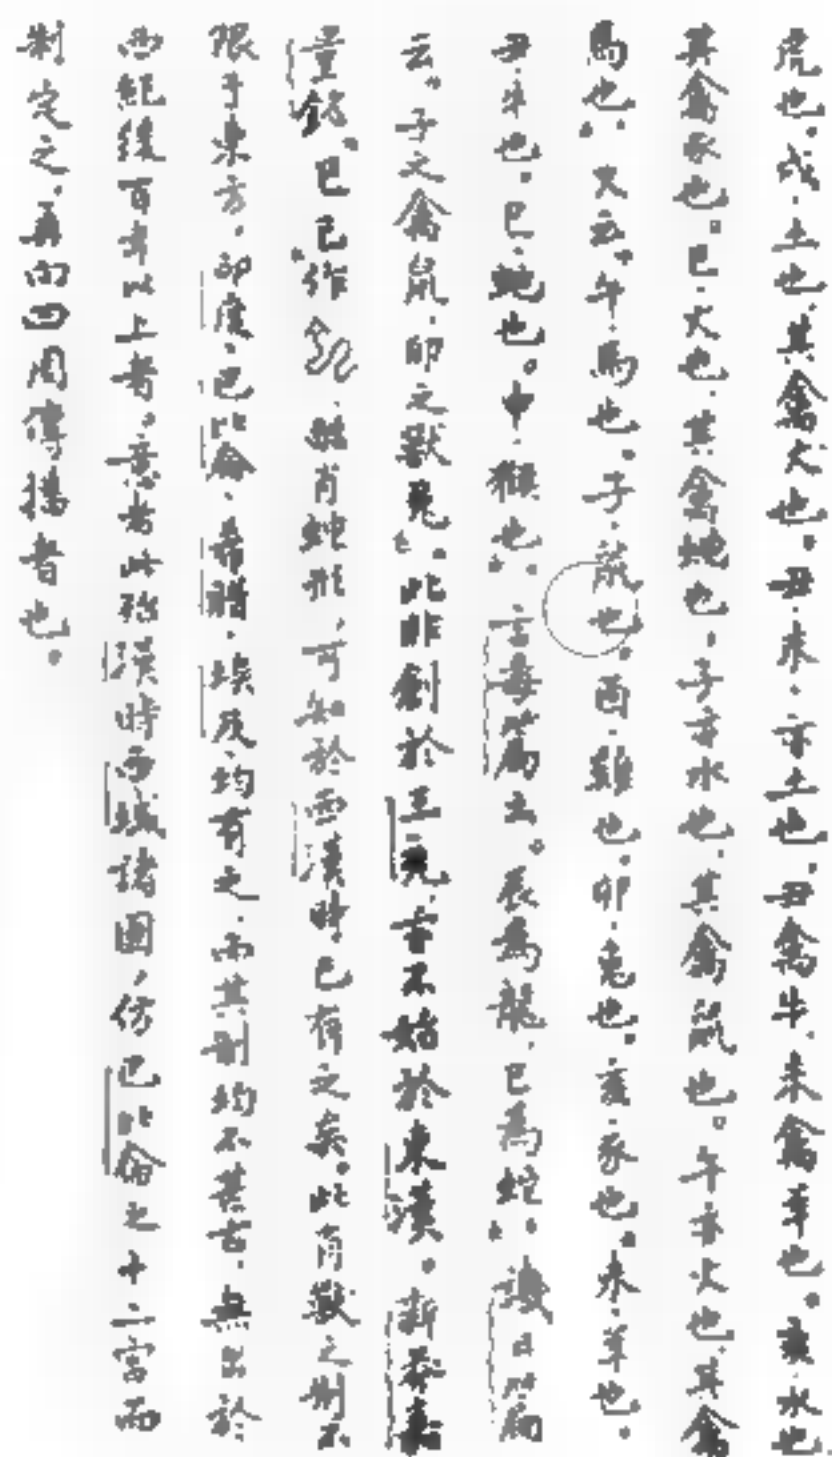 虎也。戌、土也、其禽犬也。丑、未、亦土也、丑禽牛、未禽羊也。亥、水也、
其禽豕也。巳、火也、其禽蛇也，子亦水也、其禽鼠也。午亦火也、其禽
馬也」。又云。「午、馬也。子、鼠也。酉、雞也。卯、兔也。亥、豕也。未、羊也。
丑、牛也。巳、蛇也。申、猴也」。言毒篇云。「辰為龍、巳為蛇」。譏日篇
云。「子之禽鼠、卯之獸兔」。此非創於王充、亦不始於東漢。新莽嘉
量銘、「巳」已作、髓肖蛇形，可知於西漢時、已有之矣。此肖獸之制、不
限于東方、印度、巴比侖、希腊、埃及、均有之、而其制均不甚古、無出於
西紀後百年以上者。意者此殆漢時西域諸國，仿巴比侖之十二宮而
制定之、再向四周傳播者也。